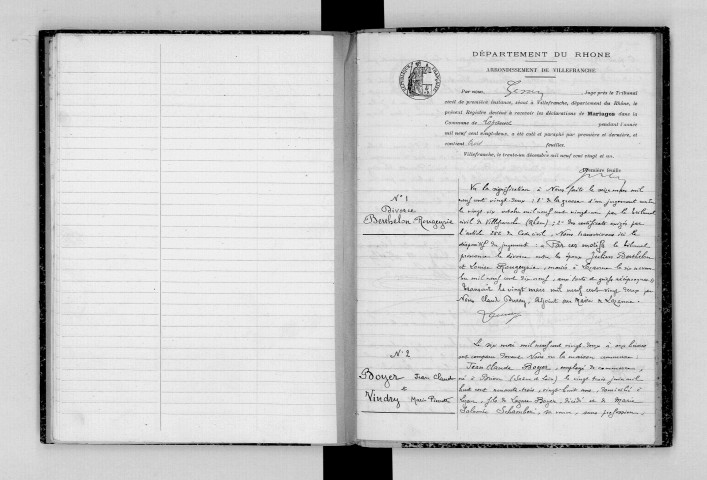 DÉPARTEMENT DU RHONE
ARRONDISSEMENT DE VILLEFRANCHE
Par nous, Juge près le Tribunal
civil de première Instance, séant à Villefranche, département du Rhône, le
présent Registre destiné à recevoir les déclarations de Mariages dans la
Commune de Lozanne pendant l'année
mil neuf cent vingt-deux, a été coté et paraphé par première et dernière, et
contient trois feuilles.
Villefranche, le trente-un décembre mil neuf cent vingt et un.
Première feuille
N° 1
Divorce
Berthelon Rougeyrie
Vu la signification à Nous faite le seize mars mil
neuf cent vingt deux : 1° de la grosse d'un jugement
le vingt six octobre mil neuf cent vingt un par le tribunal
civil de Villefranche (Rhône) ; 2° des certificats exigés par
l'article 252 du Code civil, Nous transcrivons ici le
dispositif du jugement : « Par ces motifs le tribunal
prononce le divorce entre les époux Julien Berthelon
et Louise Rougeyrie, mariés à Lozanne le six
mil neuf cent dix neuf, aux torts et griefs réciproques »
Transcrit le vingt mars mil neuf cent vingt deux par
Nous Claude Adjoint au Maire de Lozanne.
N° 2
Boyer Jean Claude
&
Vindry Marie Pierrette
Le six mai mil neuf cent vingt deux à onze heures
ont comparu devant Nous en la maison commune :
Jean Claude Boyer, employé de commerce,
né à (Saône et Loire) le vingt trois juin mil
huit cent quatre vingt trois, ans, domicilié à
Lozanne, fils de Boyer, décédé et de Marie
Salomé sa veuve, sans profession,